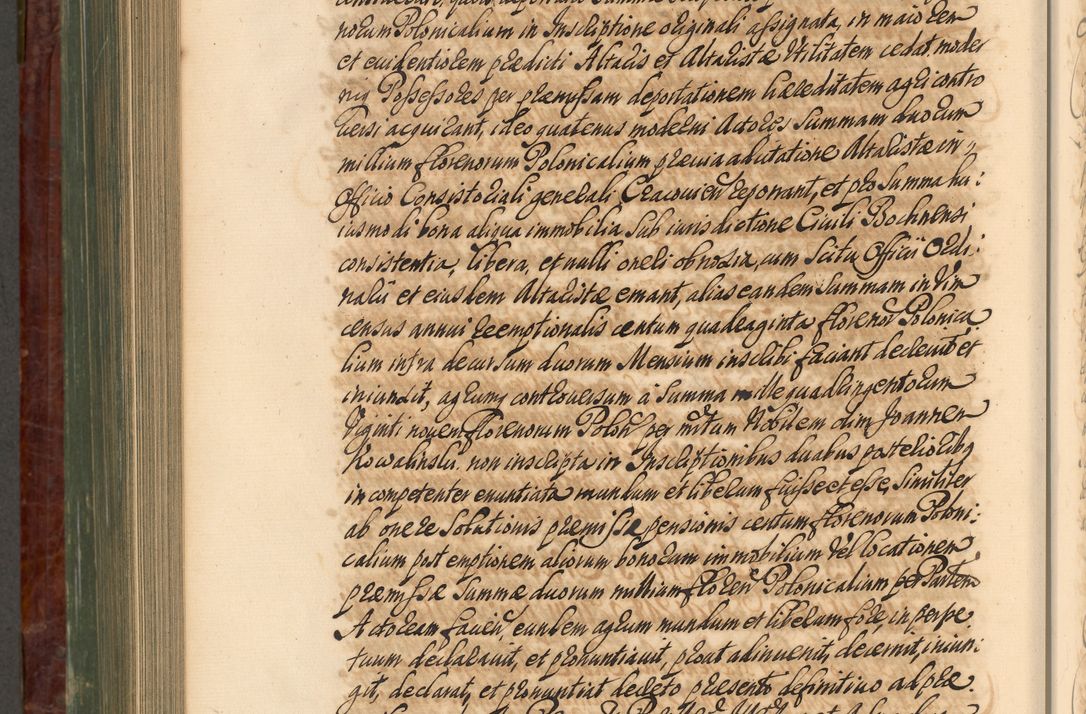 norum Polonicalium in Inscriptione originali assignata, in maiorem
et euidentiorem prædicti Altaris et Altaristæ Utilitatem cedat, moder
niq Possessores per præmissam deportationem hæreditatem agri contro
uersi acquirant, ideo quatenus moderni Actores Summam duorum
millium florenorum Polonicalium præuia aduitatione Altaristæ in,
Officio Consistoriali generali Cracouień reponant, et pro Summa hu:
iusmodi bona aliqua immobilia Sub iurisdictione Ciuili Bochnensi
consistentia, libera, et nulli oneri obnoxia, cum Scitu Officii Ordi:
narii et eiusdem Altaristæ emant, alias eandem Summam in Vim
census annui reemptionalis centum quadraginta florenor Polonica
lium infra decursum duorum Mensium inscribi faciant decreuit et
iniunxit, agrumq controuersum à Summa mille quadringentorum
Viginti novem florenorum Poloń per Nobilem olim Joannem
Kowalinski non inscripta in Inscriptionibus duabus posterioribq
incompetenter enuntiata mundum et liberum fuisse et esse, Similiter
ab onere Solutionis præmissæ pensionis centum florenorum Poloni:
calium post emptionem aliorum bonorum immobilium Vel locationem
præmissæ Summæ duorum millium floren Polonicalium per Partem
Actoream fauen, eundem agrum mundum et liberum fore, in perpe
tuum declarauit, et pronuntiauit, prout adinuenit, decernit, iniun:
git, declarat, et pronuntiat decreto præsenti definitiuo ad præ.